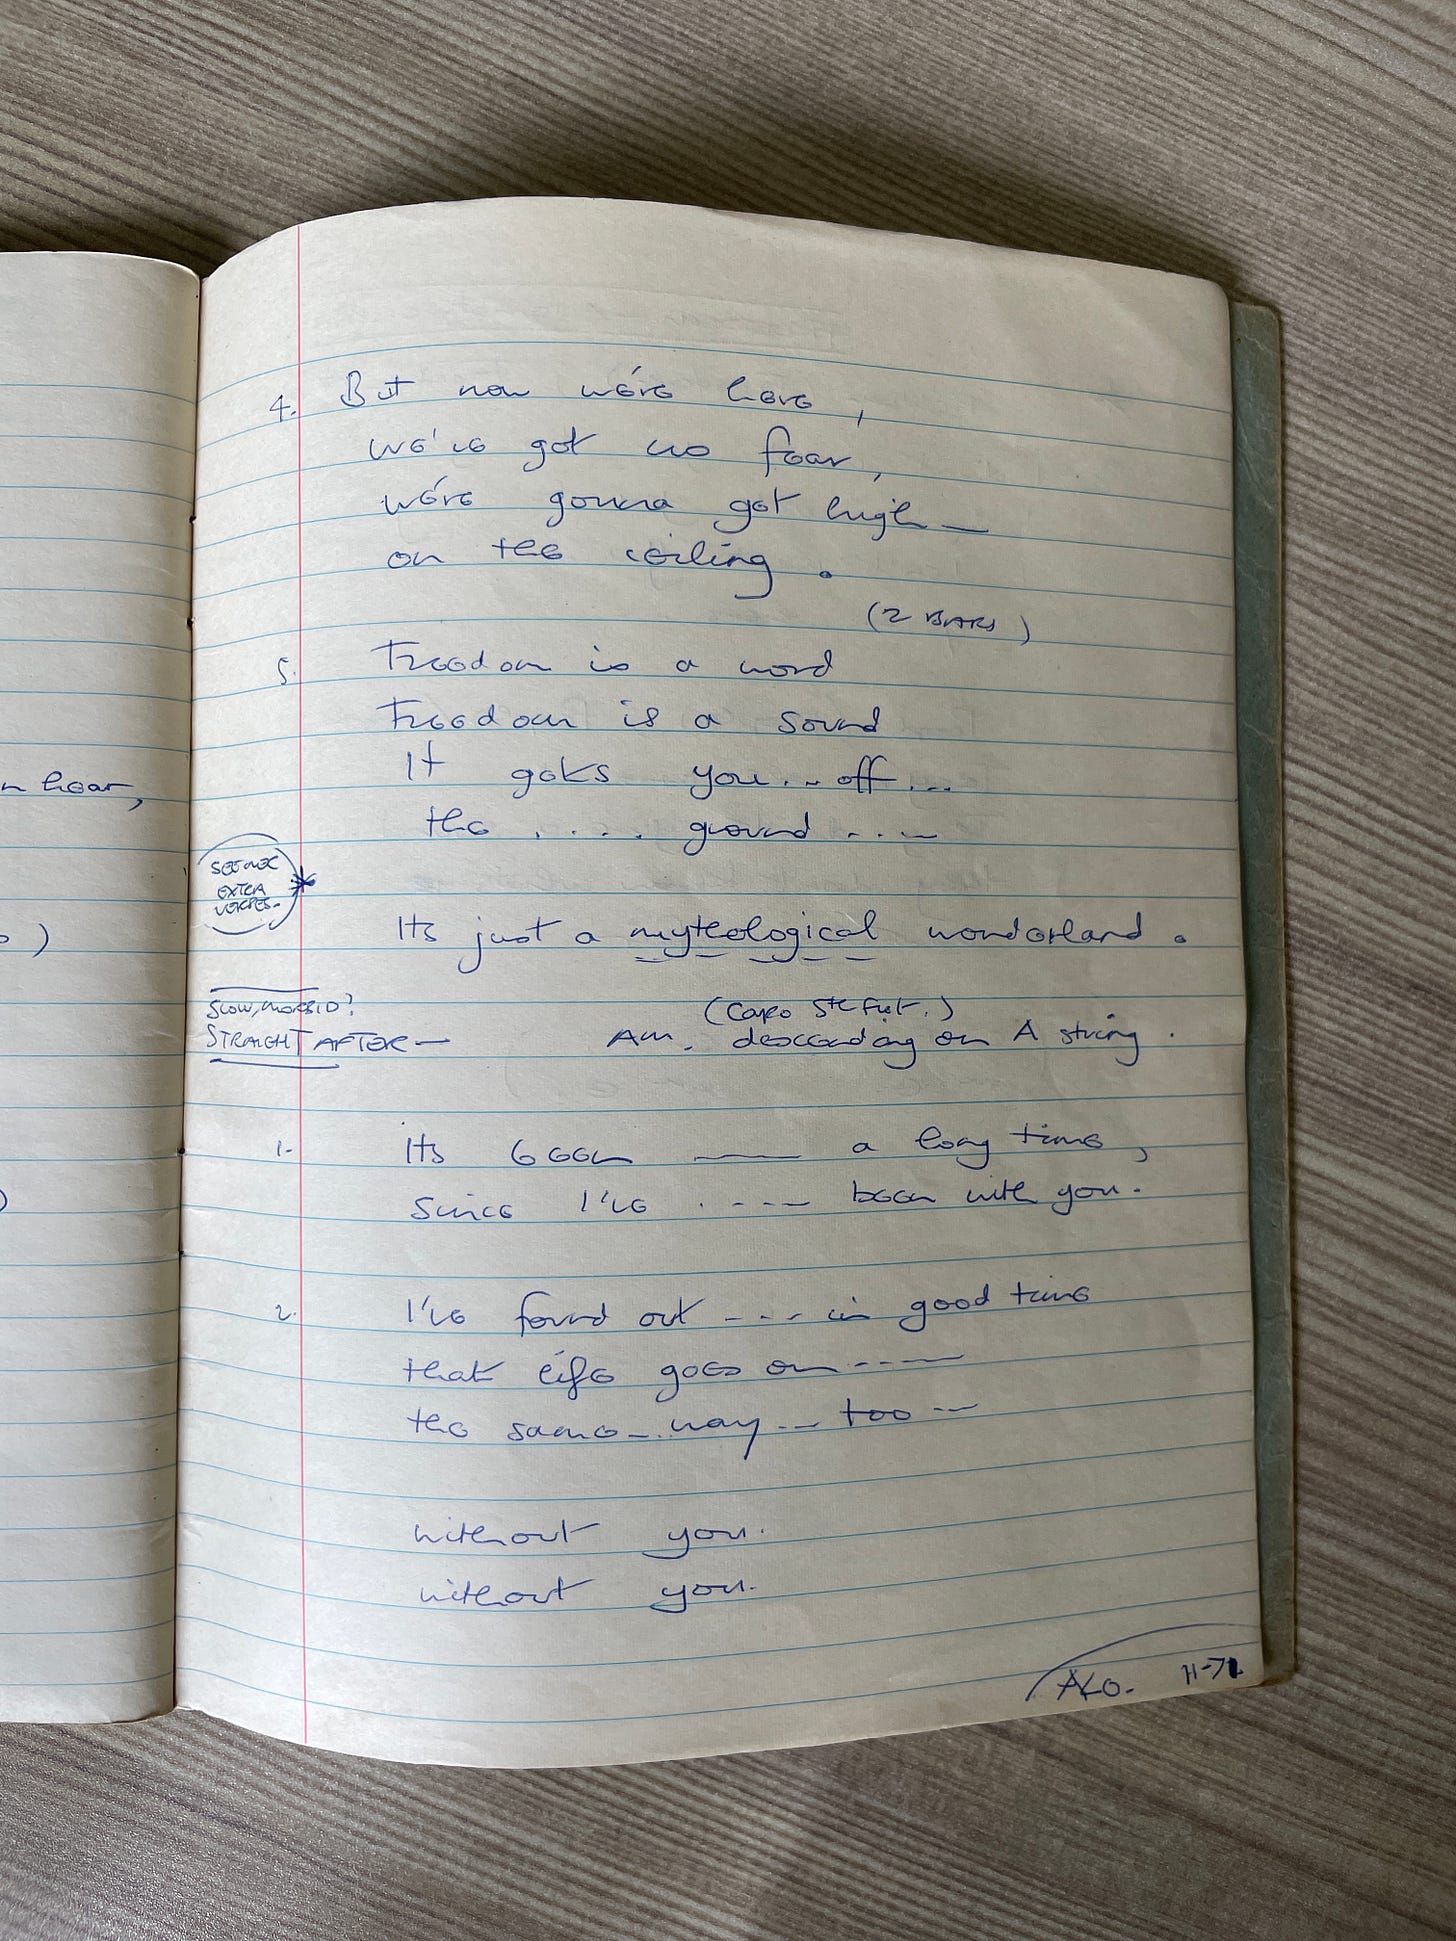 n hear,
)
)
4. But now we're here,
we've got no fear,
we're gonna get high —
on the ceiling.
(2 BARS)
5. Freedom is a word
Freedom is a sound
It gets you... off...
the .... ground ....
EXTRA
VERSES.
Its just a mythological wonderland.
SLOW, MORBID?
STRAIGHT AFTER —
(Capo 5th fret.)
Am. descending on A string.
1. Its been —— a long time,
since I've .---- been with you.
2. I've found out ---- in good time
that life goes on -----
the same -- way --- too --
without you.
without you.
11-72